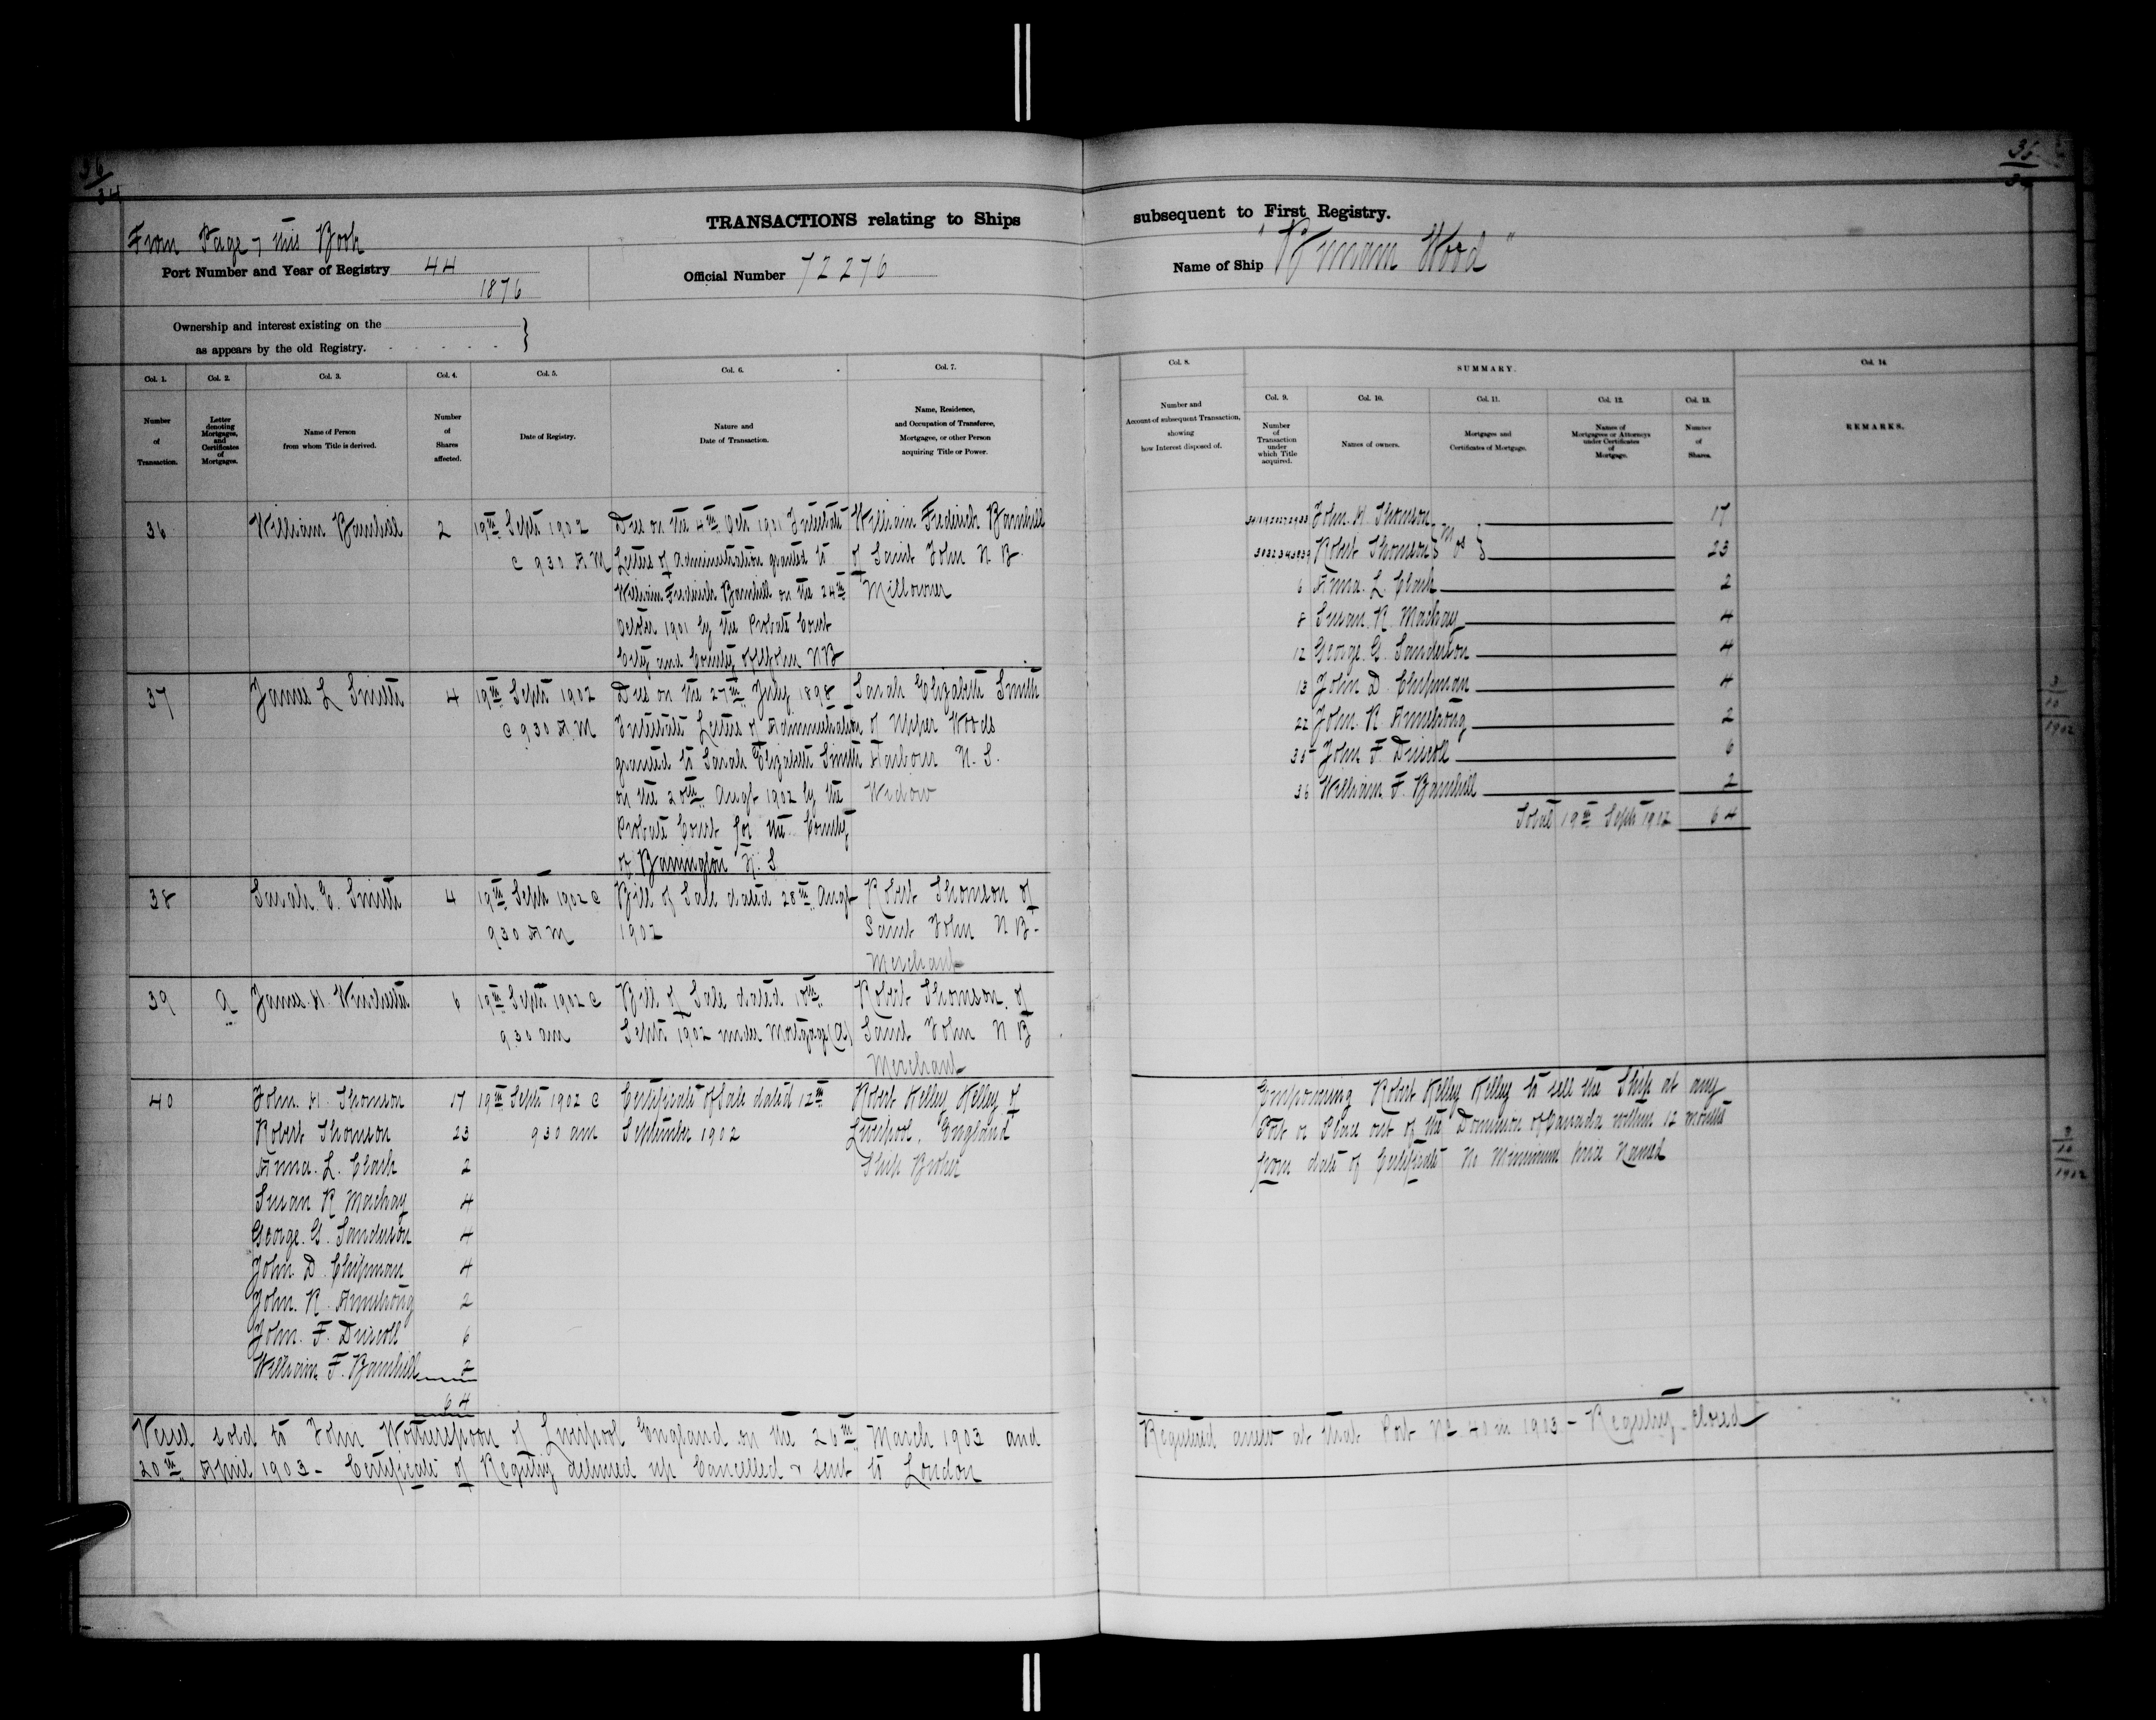 36/34
36
TRANSACTIONS relating to Ships
subsequent to First Registry.
From Page 7 this Book
Port Number and Year of Registry 44
1876
Official Number 72276
Name of Ship "Birnam Wood"
Ownership and interest existing on the
as appears by the old Registry.
Col. 1.
Col. 2.
Col. 3.
Col. 4.
Col. 5.
Col. 6.
Col. 7.
Number
of
Transaction.
Letter
denoting
Mortgages,
and
Certificates
of
Mortgages.
Name of Person
from whom Title is derived.
Number
of
Shares
affected.
Date of Registry.
Nature and
Date of Transaction.
Name, Residence,
and Occupation of Transferee,
Mortgagee, or other Person
acquiring Title or Power.
36 William Barnhill 2 19th Septr 1902 Died on the 4th Octr 1901 Intestate William Frederick Barnhill
@ 9 30 A M Letters of Administration granted to of Saint John N B
William Frederick Barnhill on the 24th Millowner
October 1901 by the Probate Court
City and County of St John N B
37 James L Smith 4 19th Septr 1902 Died on the 27th July 1898 Sarah Elizabeth Smith
@ 9 30 A M Intestate Letters of Administration of Upper Woods
granted to Sarah Elizabeth Smith Harbour N. S.
on the 20th Augt 1902 by the Widow
Probate Court for the County
of Barrington N. S
38 Sarah E. Smith 4 19th Septr 1902 @ Bill of Sale dated 28th Augt Robert Thomson of
9 30 A M 1902 Saint John N B
Merchant
39 A James H. Winchester 6 19th Septr 1902 @ Bill of Sale dated 10th Robert Thomson of
9 30 am Septr 1902 under Mortgage (A) Saint John N B
Merchant
40 John. H. Thomson 17 19th Septr 1902 @ Certificate of Sale dated 12th Robert Kelley Kelley of
Robert Thomson 23 9 30 am September 1902 Liverpool, England
Anna. L. Clark 2 Ship Broker
Susan R Mackay 4
George. G. Sanderson 4
John. D. Chipman 4
John. R. Armstrong 2
John. F. Driscoll 6
William F. Barnhill 2
64
Vessel sold to John Wotherspoon of Liverpool England on the 26th March 1903 and
20th April 1903 - Certificate of Registry delivered up Cancelled & sent to London
Col. 8.
Number and
Account of subsequent Transaction,
showing
how Interest disposed of.
SUMMARY.
Col. 9.
Col. 10.
Col. 11.
Col. 12.
Col. 13.
Col. 14.
Number
of
Transaction
under
which Title
acquired.
Names of owners.
Mortgages and
Certificates of Mortgage.
Names of
Mortgagees or Attorneys
under Certificates
of
Mortgage.
Number
of
Shares.
REMARKS.
John. H. Thomson 17
Robert Thomson 23
6 Anna. L. Clark 2
8 Susan. R. Mackay 4
12 George. G. Sanderson 4
13 John D. Chipman 4
22 John. R. Armstrong 2
35 John F. Driscoll 6
36 William. F. Barnhill 2
Total 19th Septr 1902 64
3/10/1902
Empowering Robert Kelley Kelley to sell the Ship at any
Port or Place out of the Dominion of Canada within 12 months
from date of Certificate No Minimum price Named
1902
Registered anew at that Port No 40 in 1903 - Registry Closed